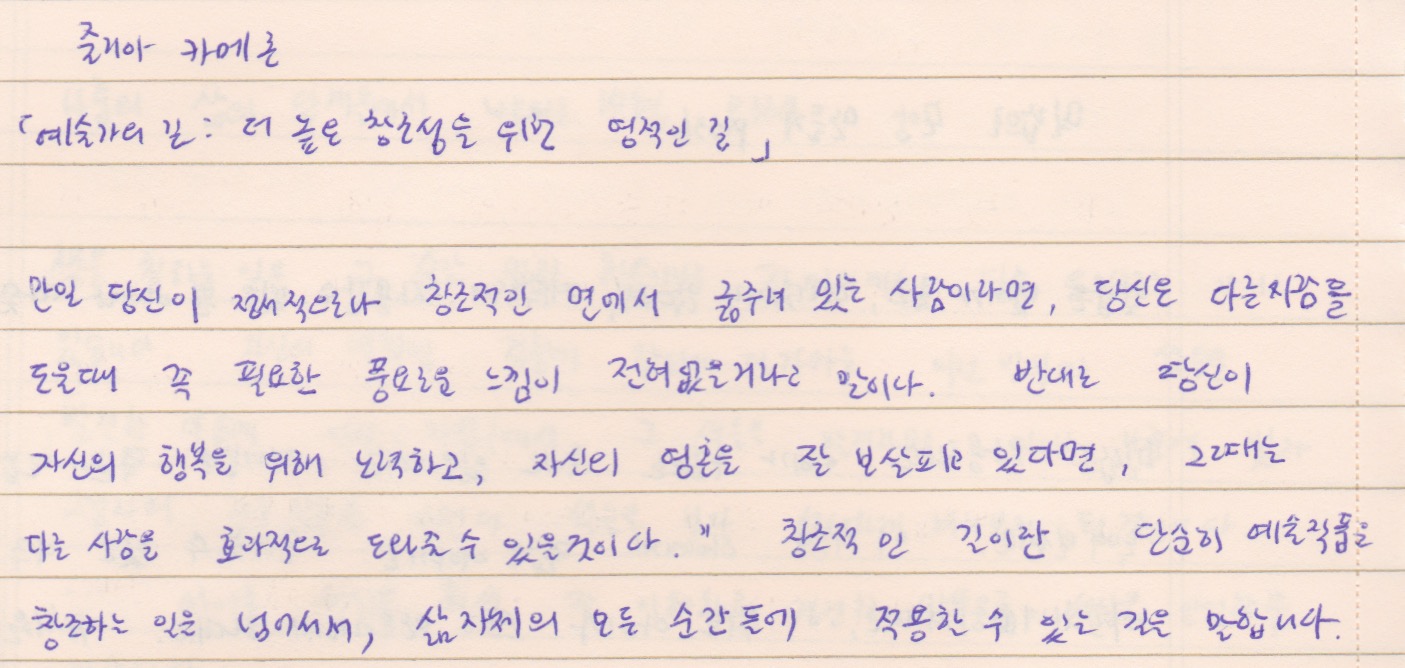 줄리아 카메론
「예술가의 길: 더 높은 창조성을 위한 영적인 길」
만일 당신이 잠재적으로나 창조적인 면에서 굶주려 있는 사람이라면, 당신은 다른사람을
도울때 꼭 필요한 풍요로운 느낌이 전혀없을거라고 말이다. 반대로 당신이
자신의 행복을 위해 노력하고, 자신의 영혼을 잘 보살피고 있다면, 그때는
다른 사람을 효과적으로 도와줄 수 있을것이다." 창조적인 길이란 단순히 예술작품을
창조하는 일을 넘어서서, 삶자체의 모든 순간들에 적용할 수 있는 길을 말합니다.